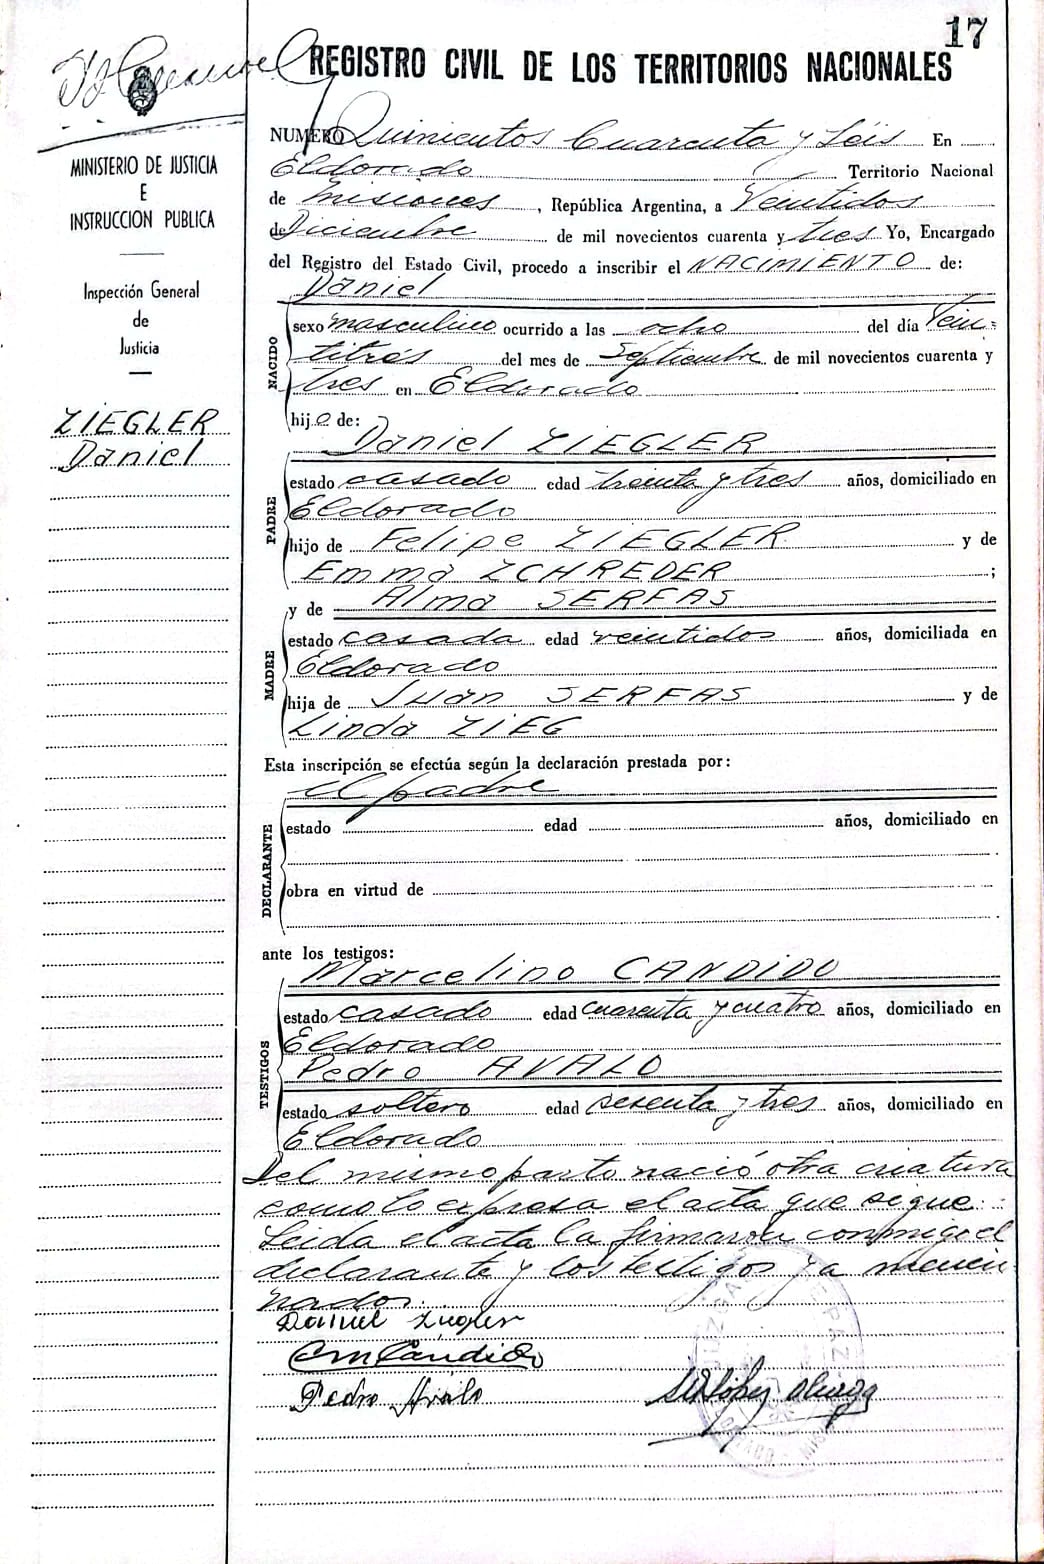 17
REGISTRO CIVIL DE LOS TERRITORIOS NACIONALES
MINISTERIO DE JUSTICIA
E
INSTRUCCION PUBLICA
Inspección General
de
Justicia
ZIEGLER
Daniel
NUMERO Quinientos Cuarenta y Séis En
Eldorado Territorio Nacional
de Misiones, República Argentina, a Veintidos
de Diciembre de mil novecientos cuarenta y tres Yo, Encargado
del Registro del Estado Civil, procedo a inscribir el NACIMIENTO de:
Daniel
NACIDO
sexo masculino ocurrido a las ocho del día Vein=
titrés del mes de Septiembre de mil novecientos cuarenta y
tres en Eldorado
hijo de:
Daniel ZIEGLER
PADRE
estado casado edad treinta y tres años, domiciliado en
Eldorado
hijo de Felipe ZIEGLER y de
Emma ZCHREDER ;
y de Alma SERFAS
MADRE
estado casada edad veintidos años, domiciliada en
Eldorado
hija de Juan SERFAS y de
Linda ZIEG
Esta inscripción se efectúa según la declaración prestada por:
el padre
DECLARANTE
estado edad años, domiciliado en
obra en virtud de
ante los testigos:
Marcelino CANDIDO
TESTIGOS
estado casado edad cuarenta y cuatro años, domiciliado en
Eldorado
Pedro AVALO
estado soltero edad sesenta y tres años, domiciliado en
Eldorado
Del mismo parto nació otra criatura
como lo expresa el acta que sigue.:
Leida el acta la firmaron conmigo el
declarante y los testigos ya mencio
nados.
Daniel Ziegler
CmCandido
Pedro Avalo